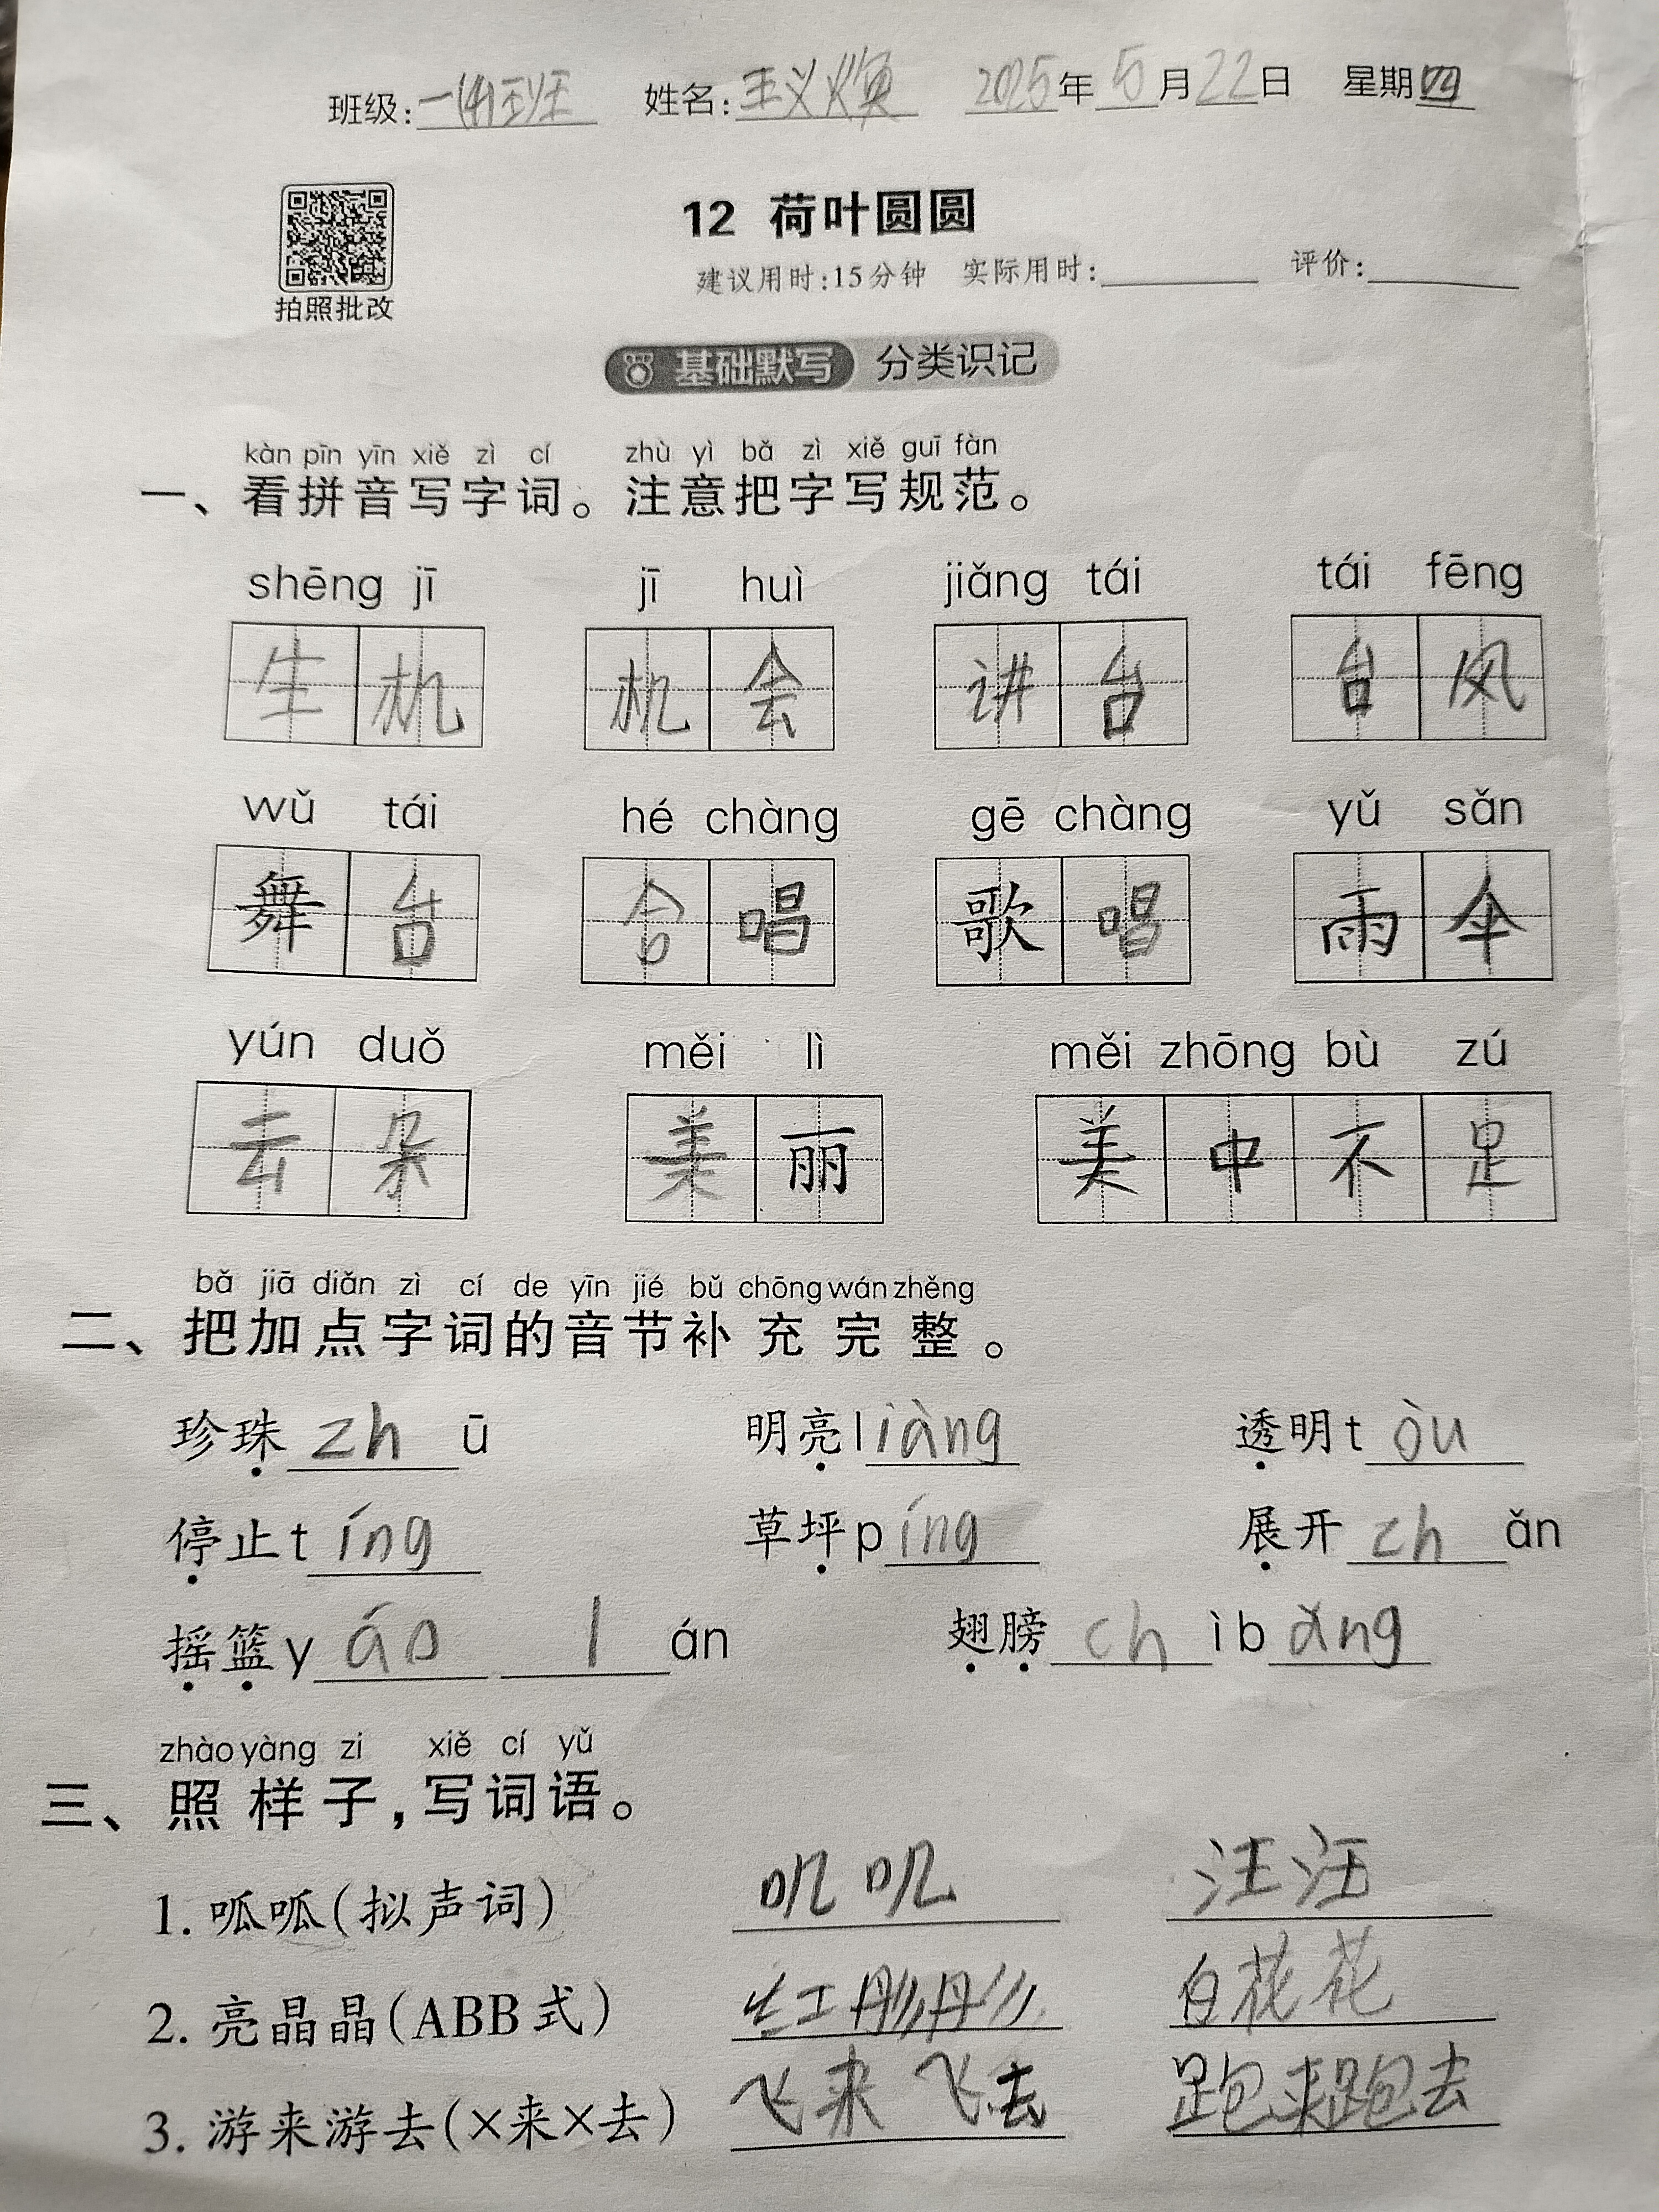 班级:一(4)班 姓名:王义焕 2025年5月22日 星期四
12 荷叶圆圆
拍照批改
建议用时:15分钟 实际用时: 评价:
基础默写 分类识记
kàn pīn yīn xiě zì cí zhù yì bǎ zì xiě guī fàn
一、看拼音写字词。注意把字写规范。
shēng jī jī huì jiǎng tái tái fēng
生机 机会 讲台 台风
wǔ tái hé chàng gē chàng yǔ sǎn
舞台 合唱 歌唱 雨伞
yún duǒ měi lì měi zhōng bù zú
云朵 美丽 美中不足
bǎ jiā diǎn zì cí de yīn jié bǔ chōng wán zhěng
二、把加点字词的音节补充完整。
珍珠 zh ū 明亮 l iàng 透明 t òu
停止 t íng 草坪 p íng 展开 zh ǎn
摇篮 y áo l án 翅膀 ch ì b ǎng
zhào yàng zi xiě cí yǔ
三、照样子,写词语。
1. 呱呱(拟声词) 叽叽 汪汪
2. 亮晶晶(ABB式) 红彤彤 白花花
3. 游来游去(×来×去) 飞来飞去 跑来跑去